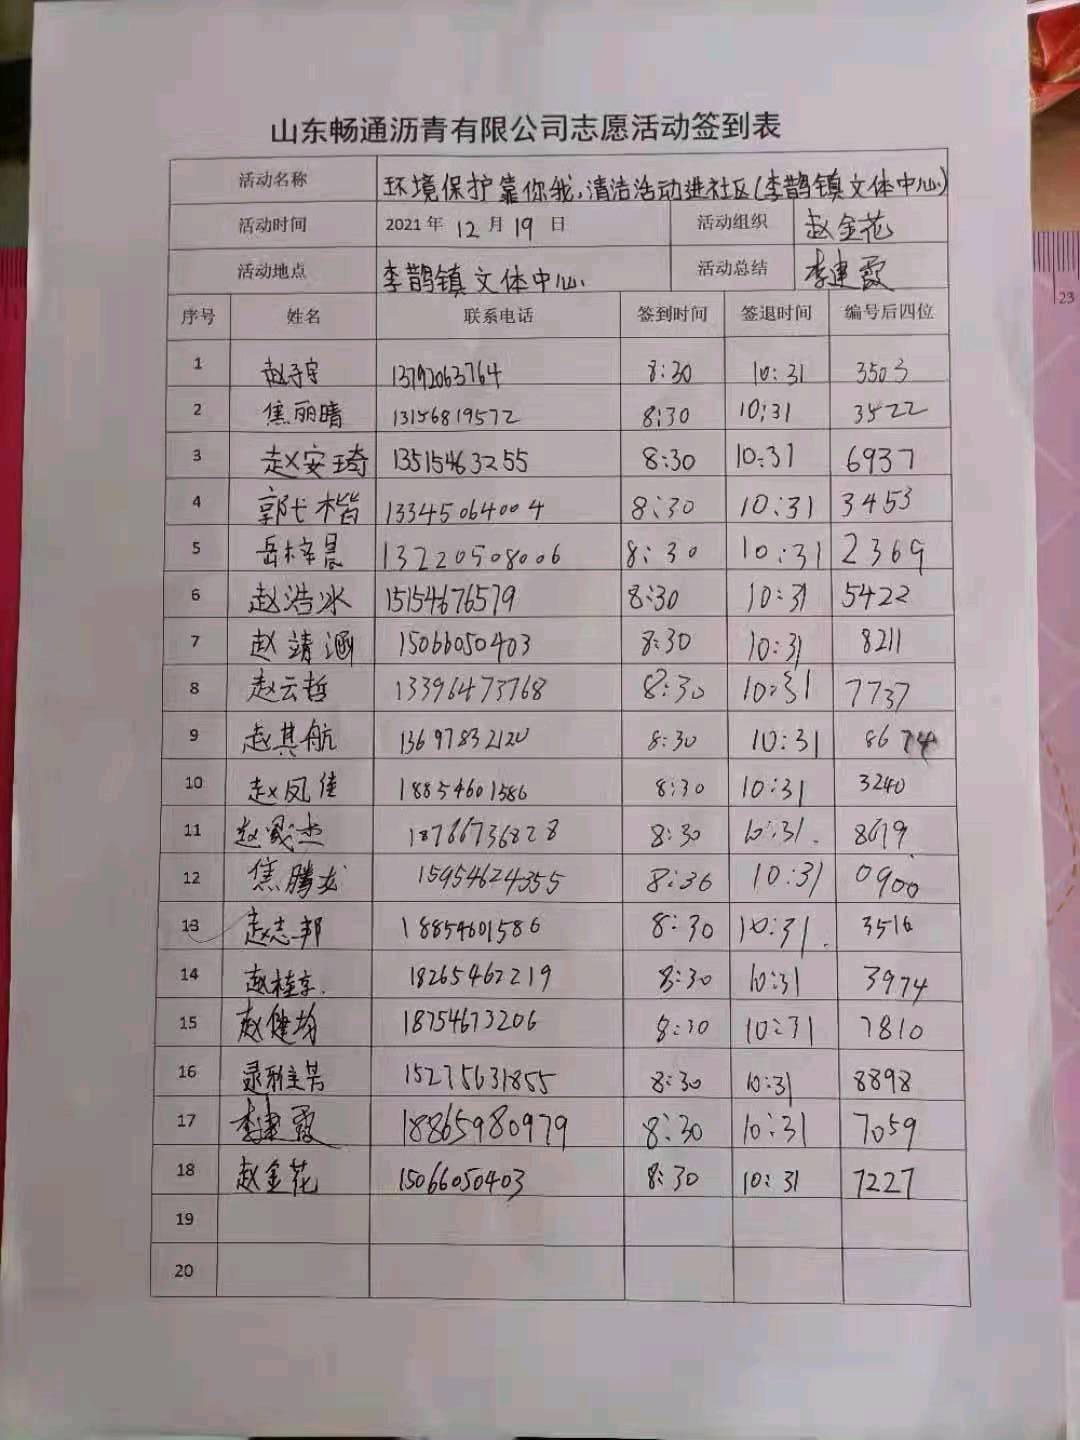 山东畅通沥青有限公司志愿活动签到表
活动名称 环境保护靠你我,清洁活动进社区(李鹊镇文体中心)
活动时间 2021年 12 月 19 日 活动组织 赵金花
活动地点 李鹊镇文体中心 活动总结 李建霞
序号 姓名 联系电话 签到时间 签退时间 编号后四位
1 赵子宇 13792063764 8:30 10:31 3503
2 焦丽晴 13156819572 8:30 10:31 3522
3 赵安琦 13515463255 8:30 10:31 6937
4 郭七楷 13345064004 8:30 10:31 3453
5 岳梓晨 13220508006 8:30 10:31 2369
6 赵浩冰 15154676579 8:30 10:31 5422
7 赵靖涵 15066050403 8:30 10:31 8211
8 赵云哲 13396473768 8:30 10:31 7737
9 赵其航 13697832120 8:30 10:31 8674
10 赵凤佳 18854601586 8:30 10:31 3240
11 18766736828 8:30 10:31. 8619
12 焦腾龙 15954624355 8:30 10:31 0900
13 赵志邦 18854601586 8:30 10:31. 3516
14 赵桂东. 18265462219 8:30 10:31 3974
15 赵健均 18754673206 8:30 10:31 7810
16 15275631855 8:30 10:31 8898
17 李建霞 18865980979 8:30 10:31 7059
18 赵金花 15066050403 8:30 10:31 7227
19
20
23